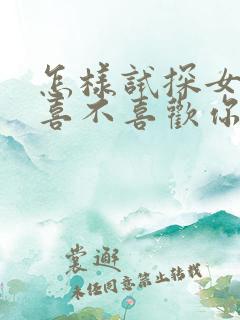 怎樣試探女
喜不喜歡你
裳邂
未任同意禁止转载